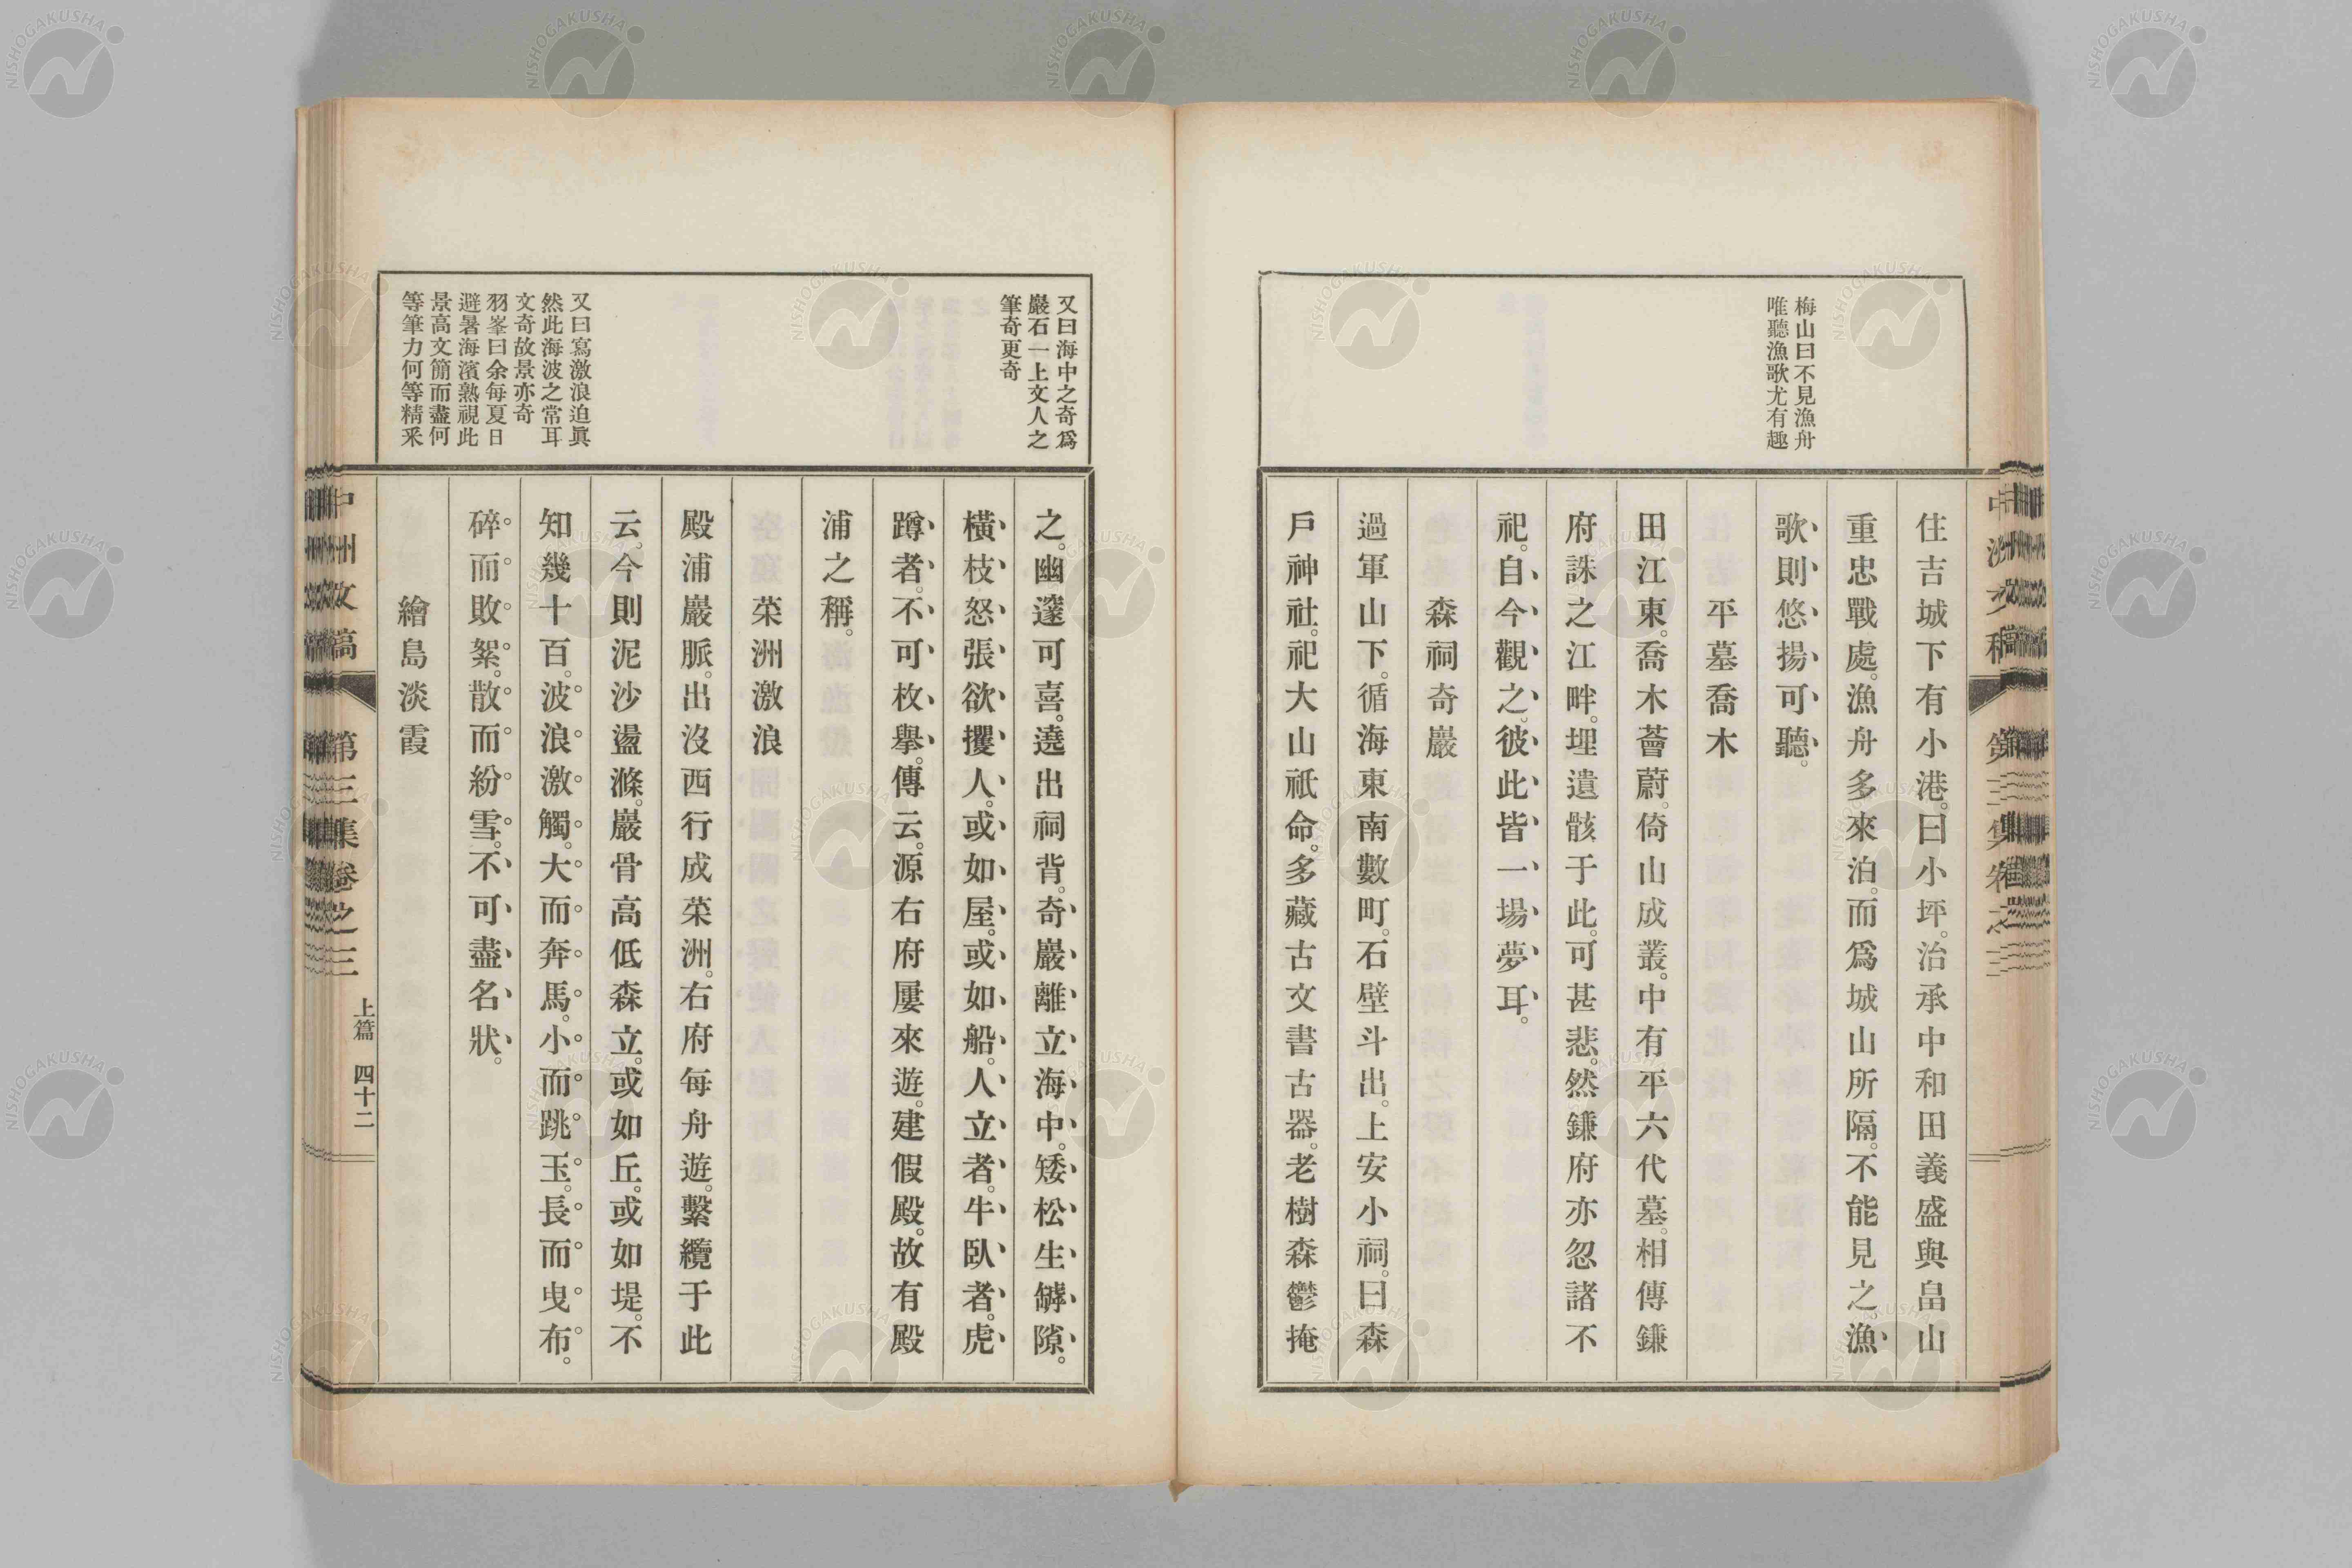 梅山曰不見漁舟
唯聽漁歌尤有趣
住吉城下有小港。曰小坪。治承中和田義盛與畠山
重忠戰處。漁舟多來泊。而爲城山所隔。不能見之。漁
歌則悠揚可聽。
平墓喬木
田江東。喬木薈蔚。倚山成叢。中有平六代墓。相傳鎌
府誅之江畔。埋遺骸于此。可甚悲。然鎌府亦忽諸不
祀。自今觀之。彼此皆一場夢耳。
森祠奇巖
過軍山下。循海東南數町。石壁斗出。上安小祠。曰森
戶神社。祀大山祇命。多藏古文書古器。老樹森鬱掩
又曰海中之奇爲
巖石一上文人之
筆奇更奇
之。幽邃可喜。遶出祠背。奇巖離立海中。矮松生罅隙。
橫枝怒張欲攫人。或如屋。或如船。人立者。牛臥者。虎
蹲者。不可枚擧。傳云。源右府屢來遊。建假殿。故有殿
浦之稱。
又曰寫激浪迫眞
然此海波之常耳
文奇故景亦奇
羽峯曰余每夏日
避暑海濱熟視此
景高文簡而盡何
等筆力何等精釆
菜洲激浪
殿浦巖脈。出沒西行成菜洲。右府每舟遊。繫纜于此
云。今則泥沙盪滌。巖骨高低森立。或如丘。或如堤。不
知幾十百。波浪激觸。大而奔馬。小而跳玉。長而曳布。
碎而敗絮。散而紛雪。不可盡名狀。
繪島淡霞
中洲文稿 第三集卷之三 上篇 四十二
NISHOGAKUSHA